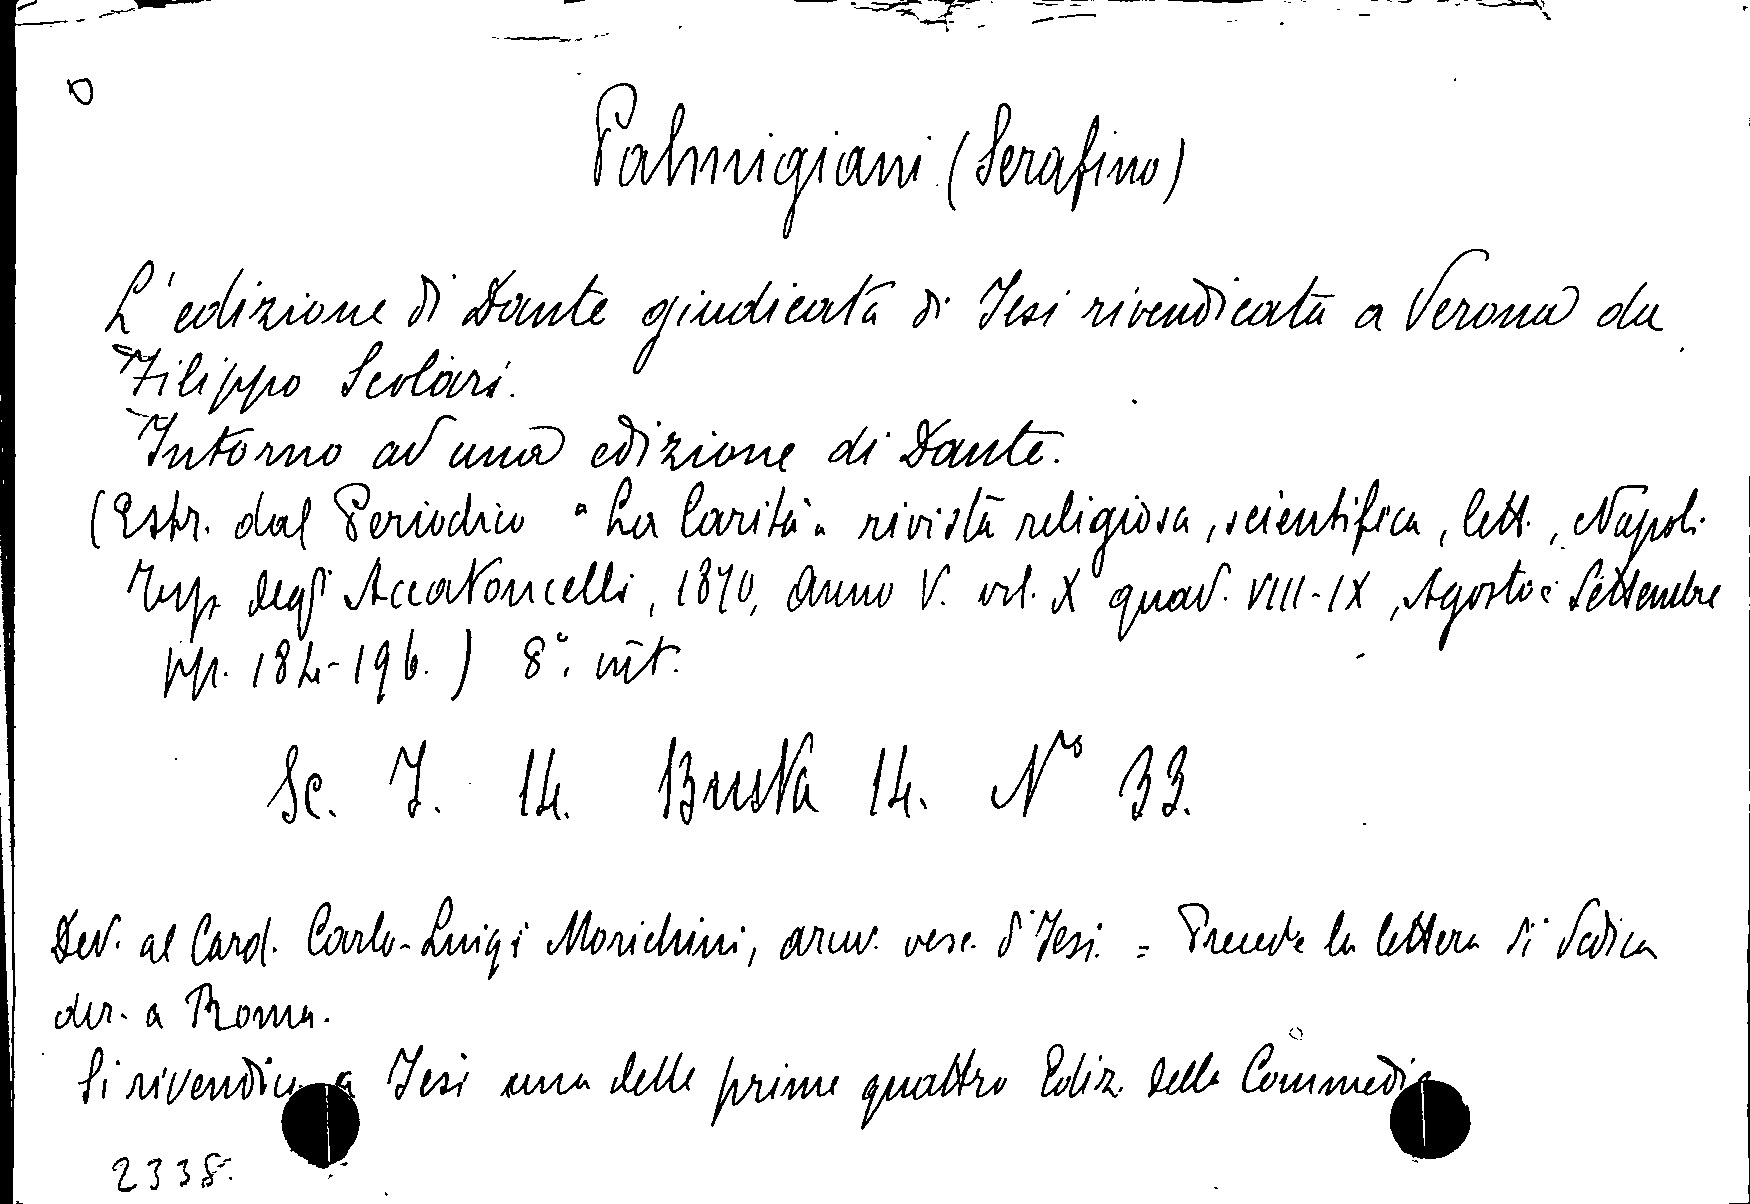 Palmigiani (Serafino)
L'edizione di Dante giudicata di Iesi rivendicata a Verona da
Filippo Scolari.
Intorno ad una edizione di Dante.
(Estr. dal Periodico "La Carità" rivista religiosa, scientifica, lett., Napoli
Tip. degli Accattoncelli, 1870, Anno V. vol. X quad. VIII-IX, Agosto e Settembre
pp. 184-196.) 8°. int.
Sc. I. 14. Busta 14. N° 33.
Ded. al Card. Carlo-Luigi Morichini, arciv. vesc. d'Iesi. = Precede la lettera di dedica
dir. a Roma.
Si rivendica a Iesi una delle prime quattro Ediz. della Commedia
2338.